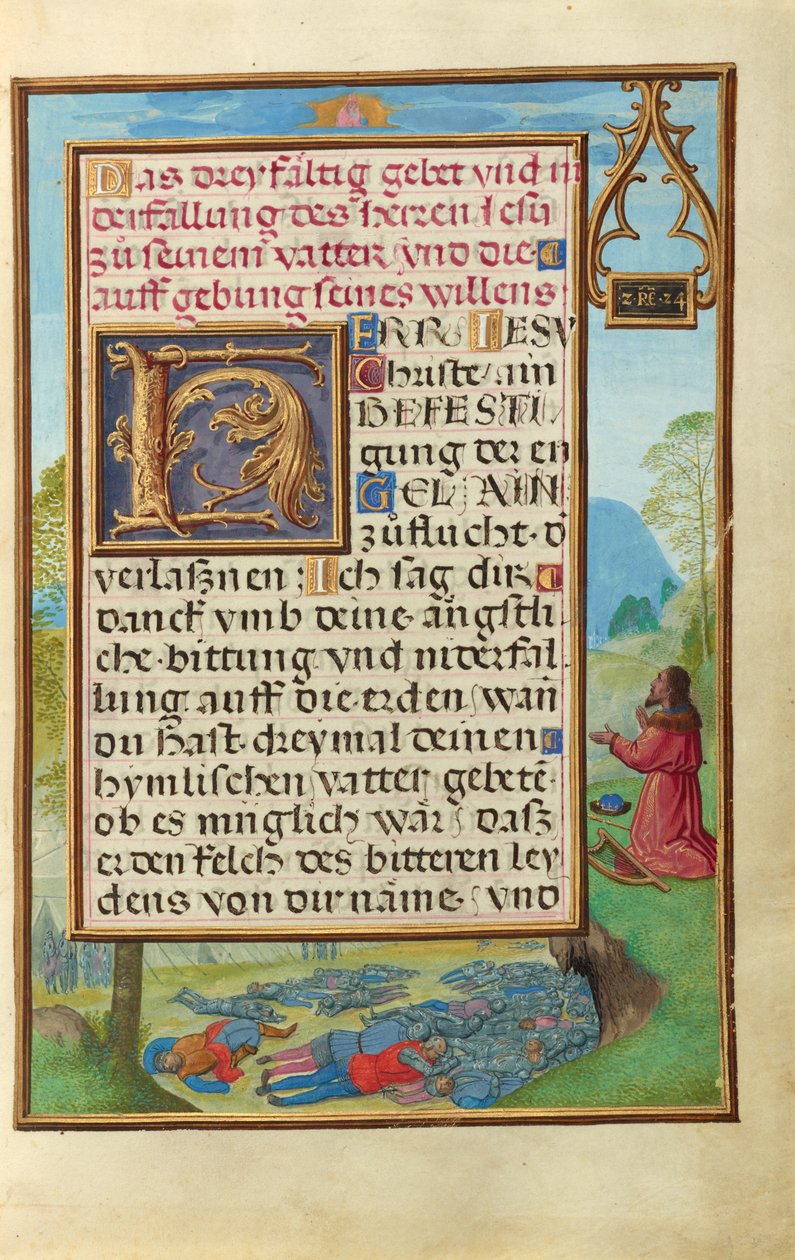 Das dreyfältig gebet vnd ni
derfallung des herren Jesu
zů seinem vatter vnd die
auffgebung seines willens
HERR IESV
Christe ain
BEFESTI
gung der en
GEL AIN
zůflucht d
verlasznen : Ich sag dir
danck vmb deine ängstli
che bittung vnd niderfal
lung auff die erden wan̄
du hast dreymal deinen
hymlischen vatter gebetē
ob es müglich wär dasz
er den kelch des bitteren ley
dens von dir näme vnd